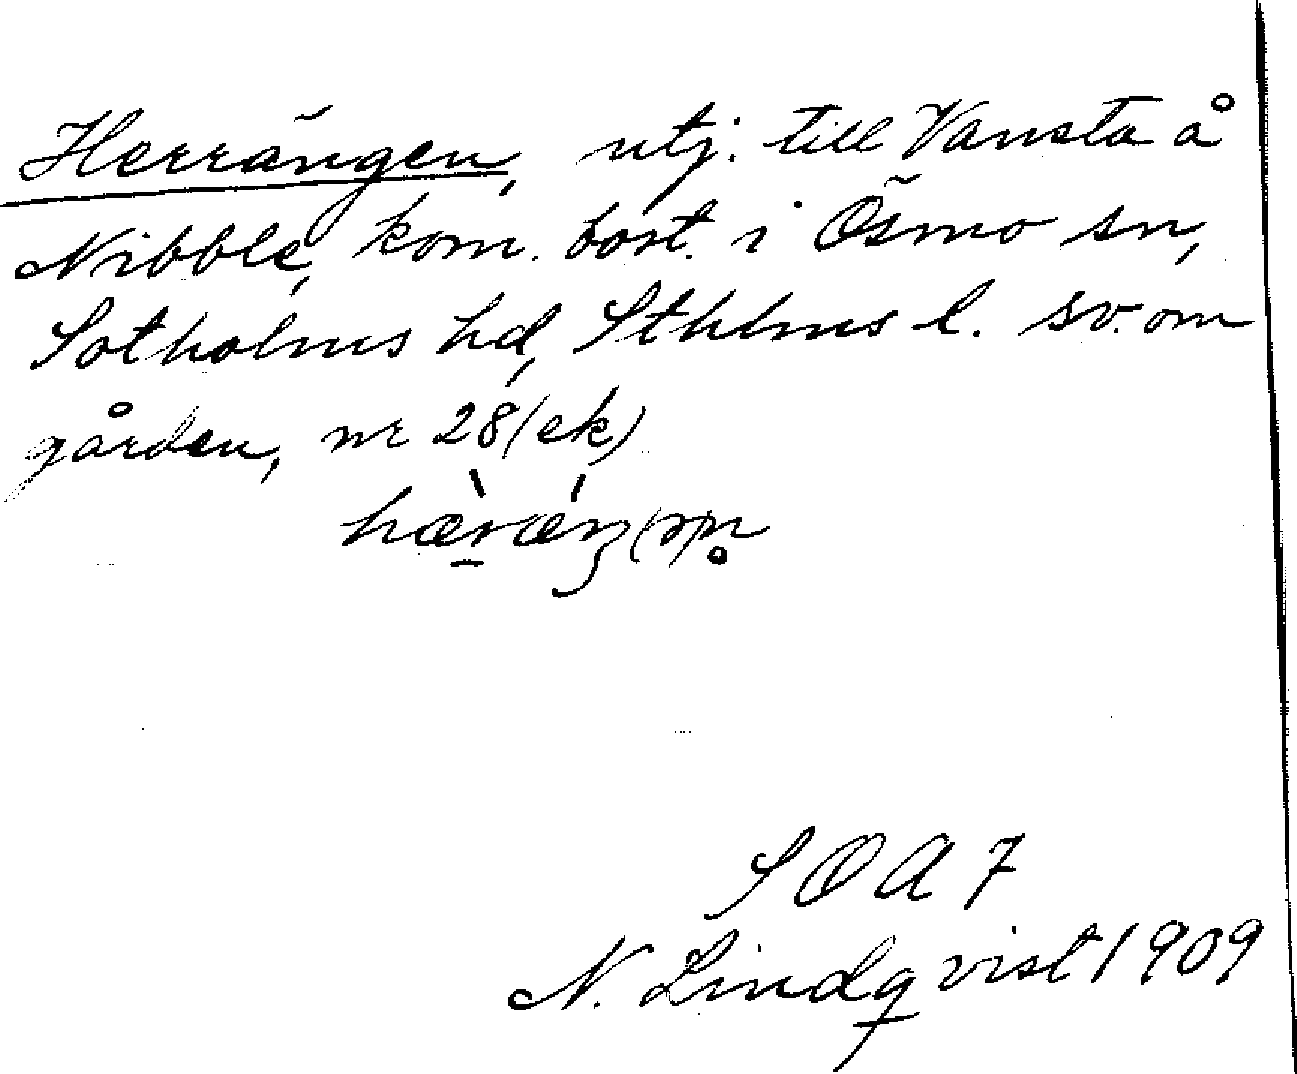 Herrängen, utj. till Vansta å
Nibble, kom. bost. i Ösmo sn,
Sotholms hd, Sthlms l. sv. om
gården, nr 28 (ek)
S O A 7
N. Lindqvist 1909